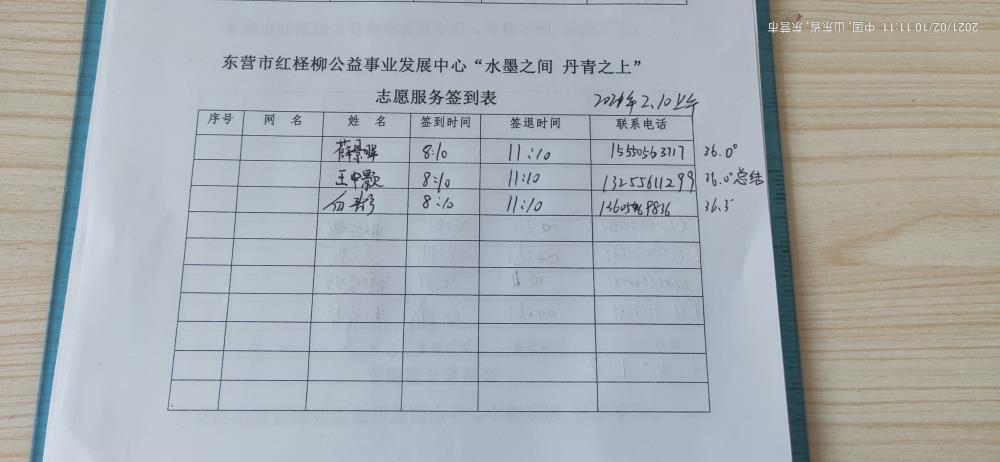 2021/02/10 11:11 中国, 山东省, 东营市
东营市红柽柳公益事业发展中心“水墨之间 丹青之上”
志愿服务签到表 2021年2.10上午
序号 网 名 姓 名 签到时间 签退时间 联系电话
薛景晖 8:10 11:10 15550563717 36.0°
8:10 11:10 13255611299 36.0° 总结
8:10 11:10 36.5